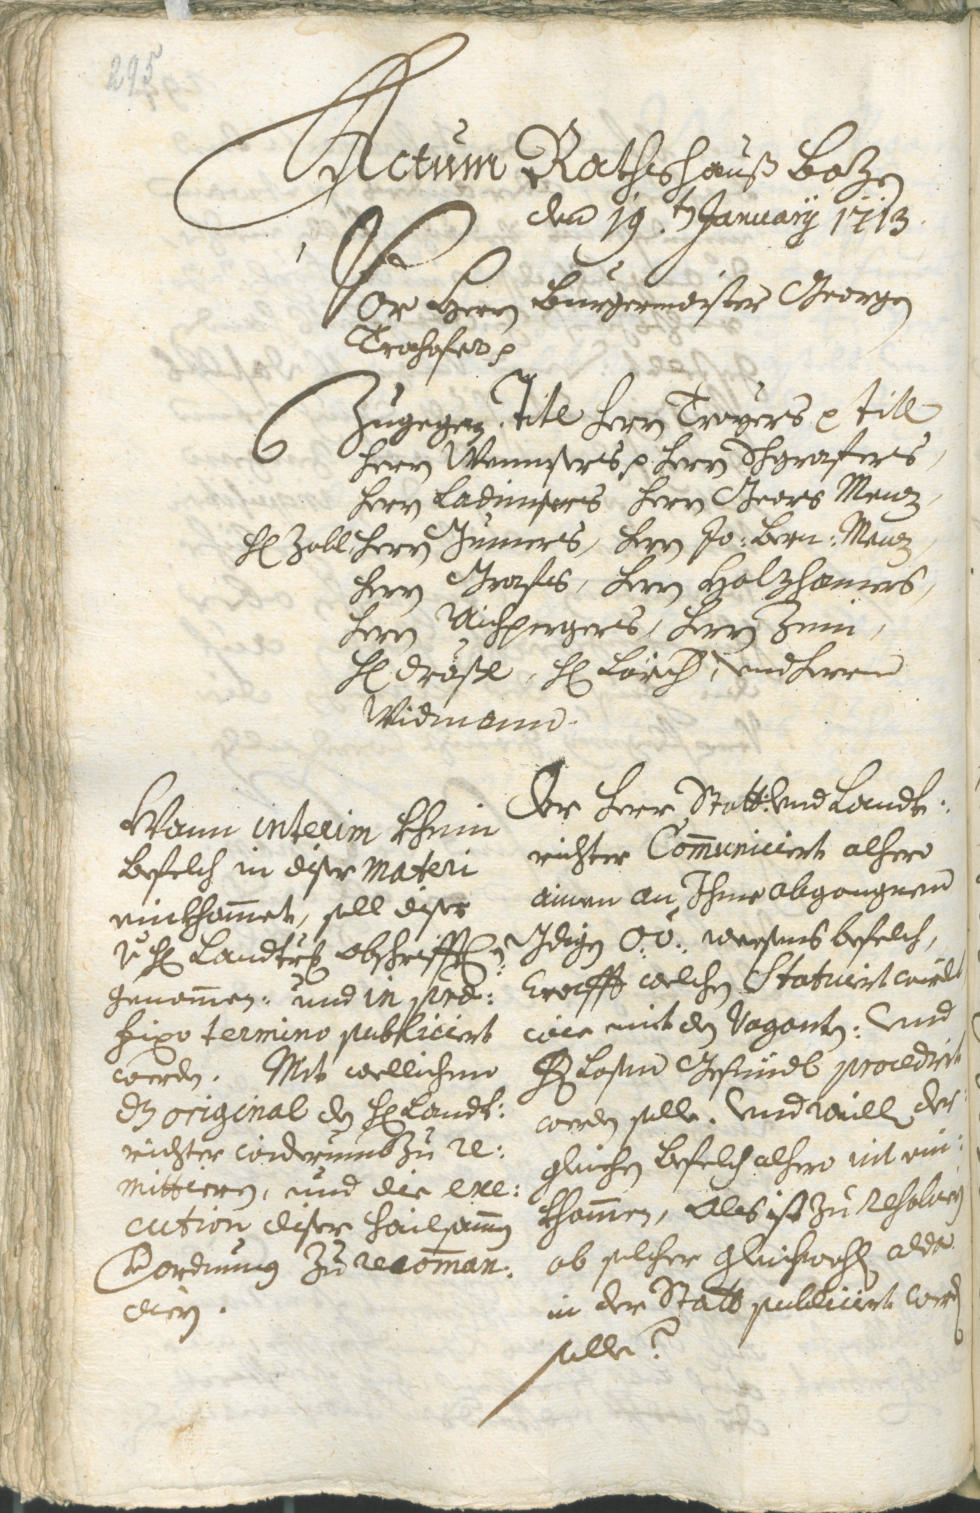 295
Actum Rathshauß Botzen
den 19.ten January 1713.
Vor Herrn Burgermeister Georgen
Trohofer p
Zugegen. Titl Herrn Troyers p titl
Herrn Wennsers p Herrn Schgraffers,
Herrn Ladinsers Herrn Georg Menz,
H: Zoll: Herrn Jumers, Herrn Jo: Bern: Menz,
Herrn Grafes, Herrn Holzhamers,
Herrn Aichpergers, Herrn Zeni,
H: H: Lörch, und Herrn
Widmann.
Der Herr Statt: und Landt:
richter Communiciert alhero
ainen an Ihme abgangnen
O: Ö: wesens befelch,
Crafft welchen Statuirt wirdt
wie mit den Vaganten: Und
Herrnlosen Gesündl procedirt
werden solle. Und weill der
gleichen befelch alhero nit ein:
khommen, Als ist zu resolviern
ob solcher gleichwohl alda
in der Statt publiciert werden
solle?
Wann interim khein
befelch in diser Materi
einkhommet, soll diser
Landtrichters abschrifften:
genommen: und in præ:
fixo termino publiciert
werden. Mit wellichem
dz original dem H: Landt:
richter widerumb zu re:
mittiern, und die exe:
cution diser hailsamen
Verordnung zu recomman:
diern.